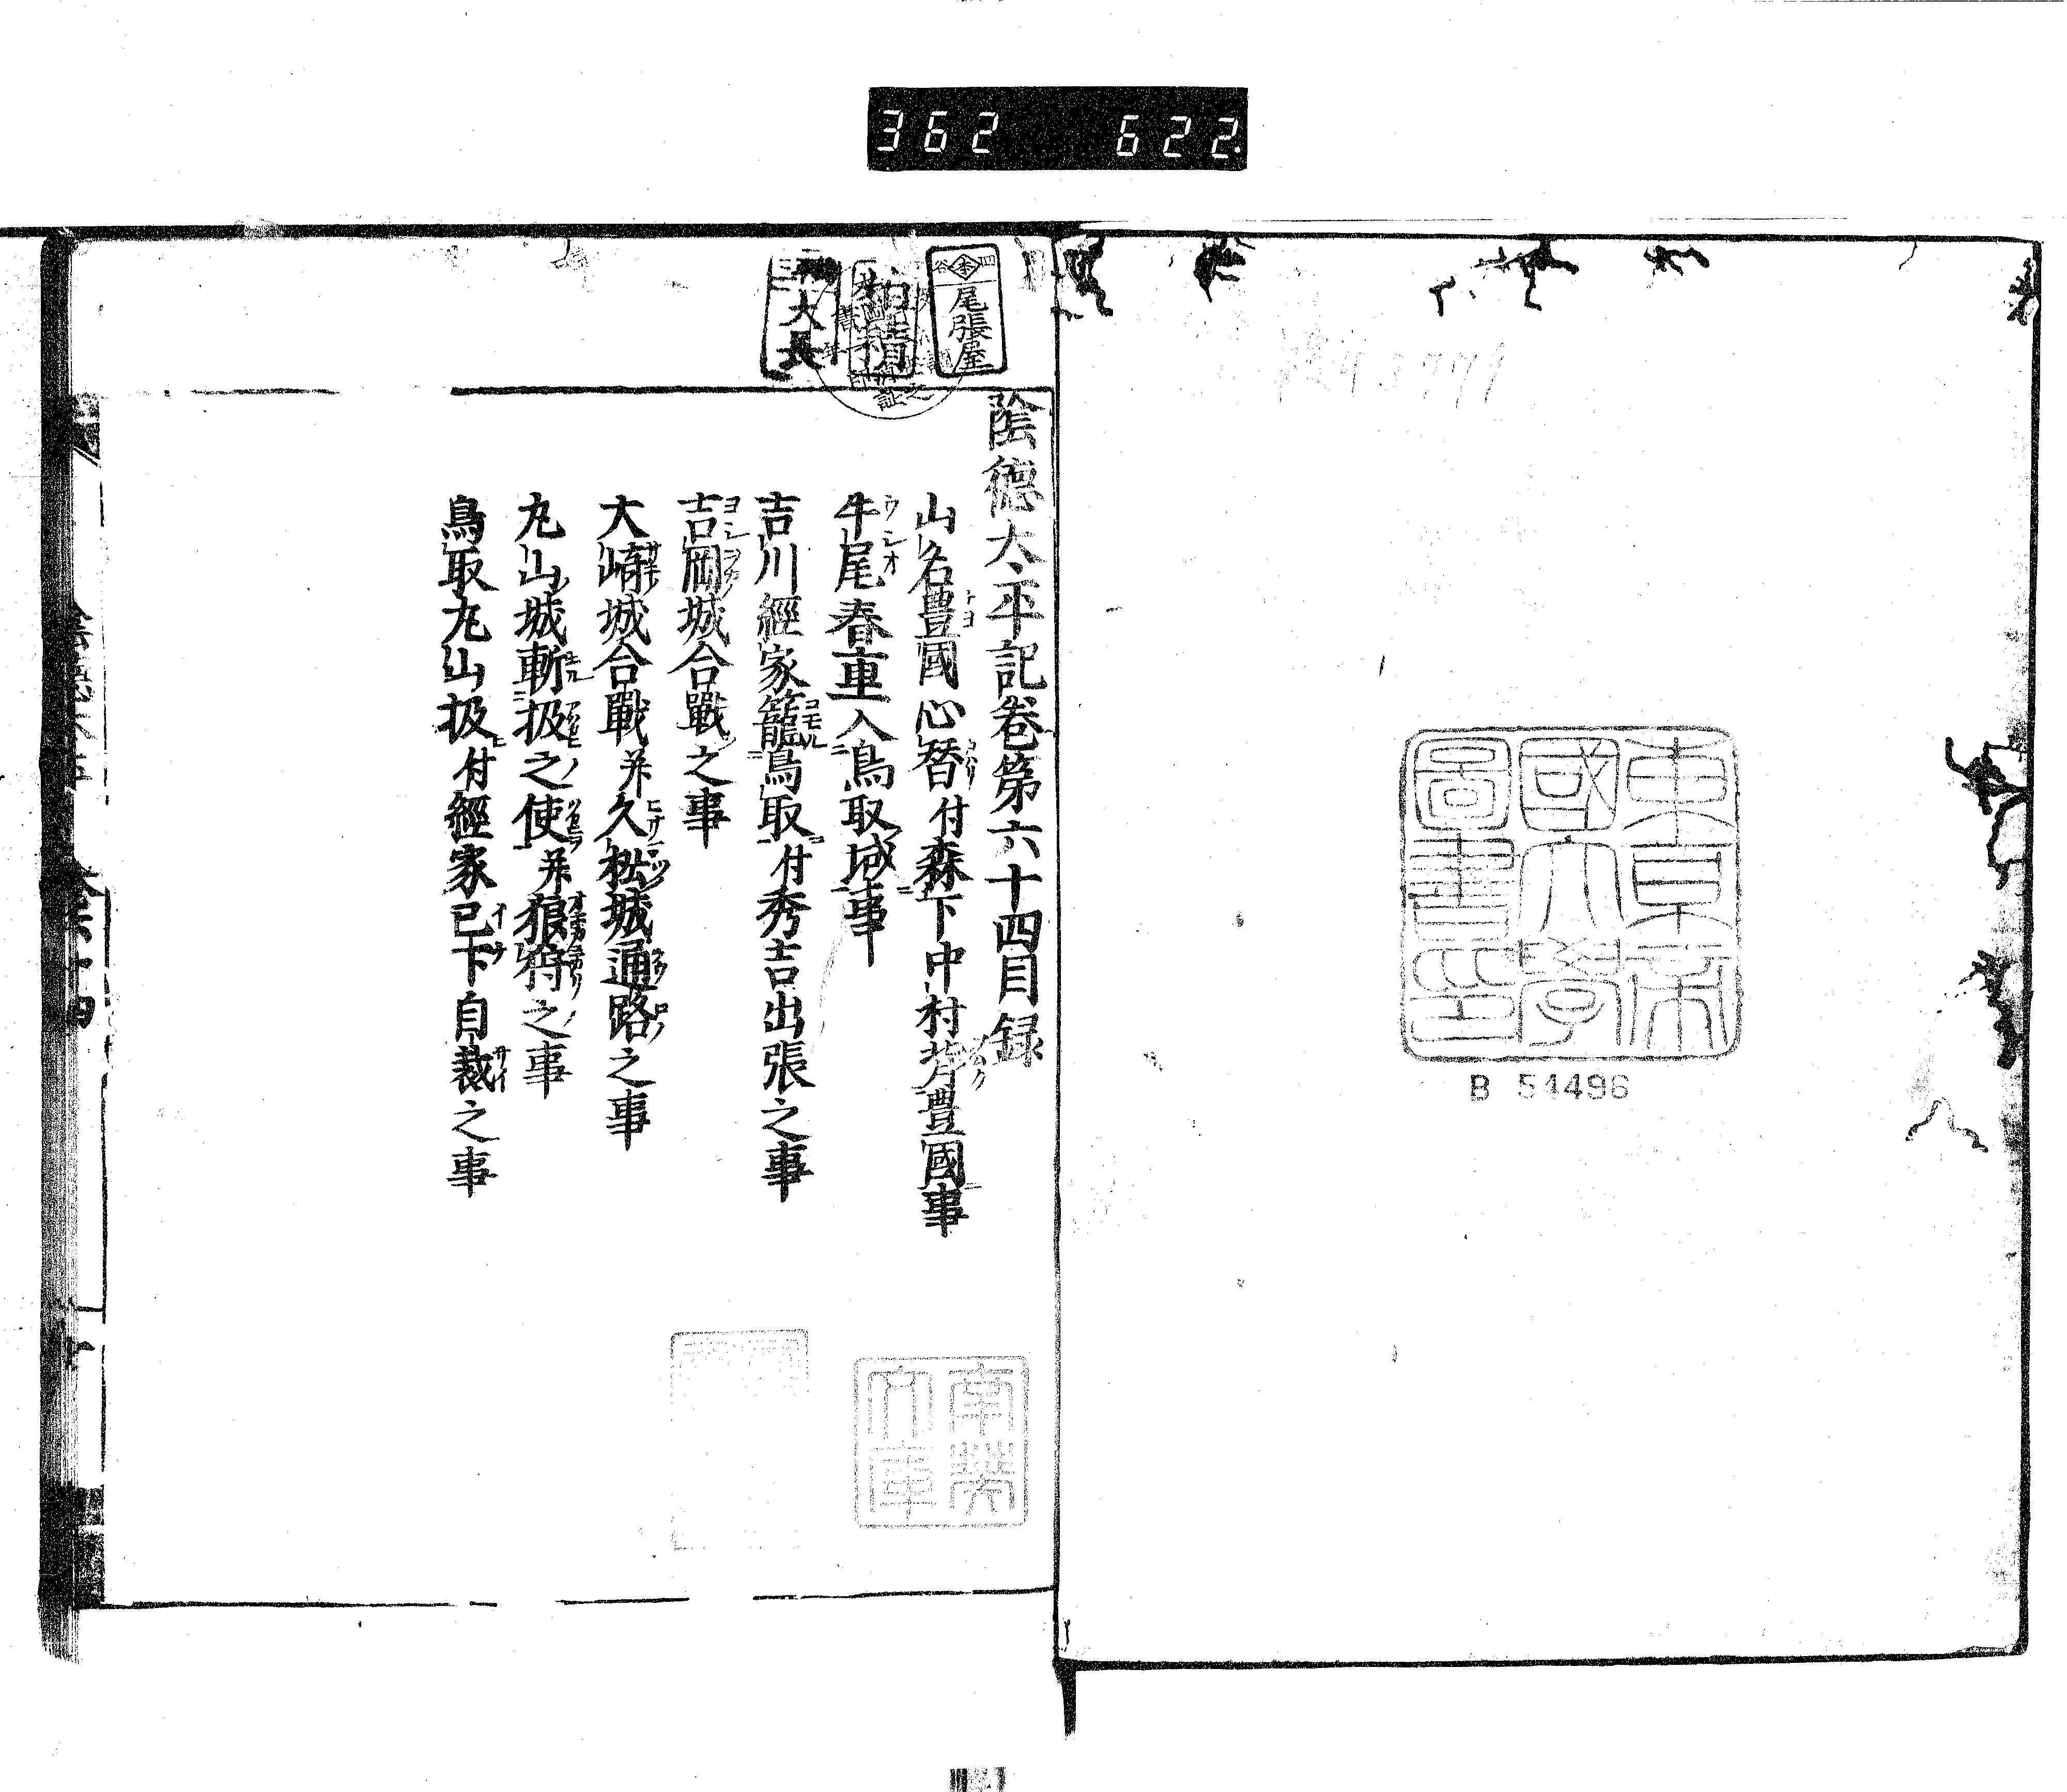 362 622.
東京帝
國大學
圖書印
B 54496
尾張屋
陰德太平記卷第六十四目録
山名豊國心替付森下中村背豊國事
牛尾春重入鳥取城事
吉川經家籠鳥取付秀吉出張之事
吉岡城合戰之事
大﨑城合戰并久松城通路之事
丸山城斬扱之使并狼狩之事
鳥取丸山扱付經家已下自裁之事
南葵
文庫